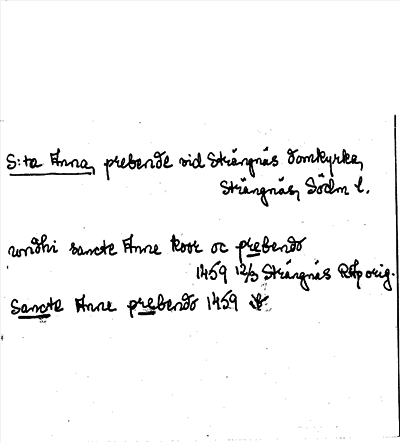 S:ta Anna, prebende vid Strängnäs domkyrka,
Strängnäs, Södm l.
undhi sancte Anne koor oc prebendo
1459 12/3 Strängnäs RAp orig.
Sancte Anne prebendo 1459